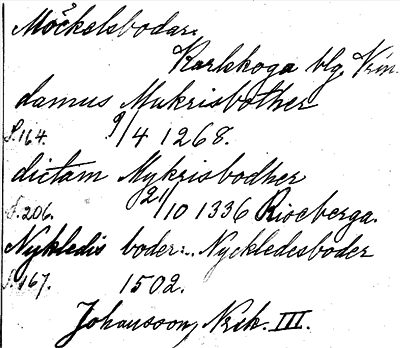 Möckelsbodar.
Karlskoga blg. Vrm.
damus Mukrisbother
S.164. 9/4 1268.
dictam Mykrisbodher
S.206. 21/10 1336 Riseberga.
Nykledis boder: Nyckledesboder
S.167. 1502.
Johansson, Nrik. III.